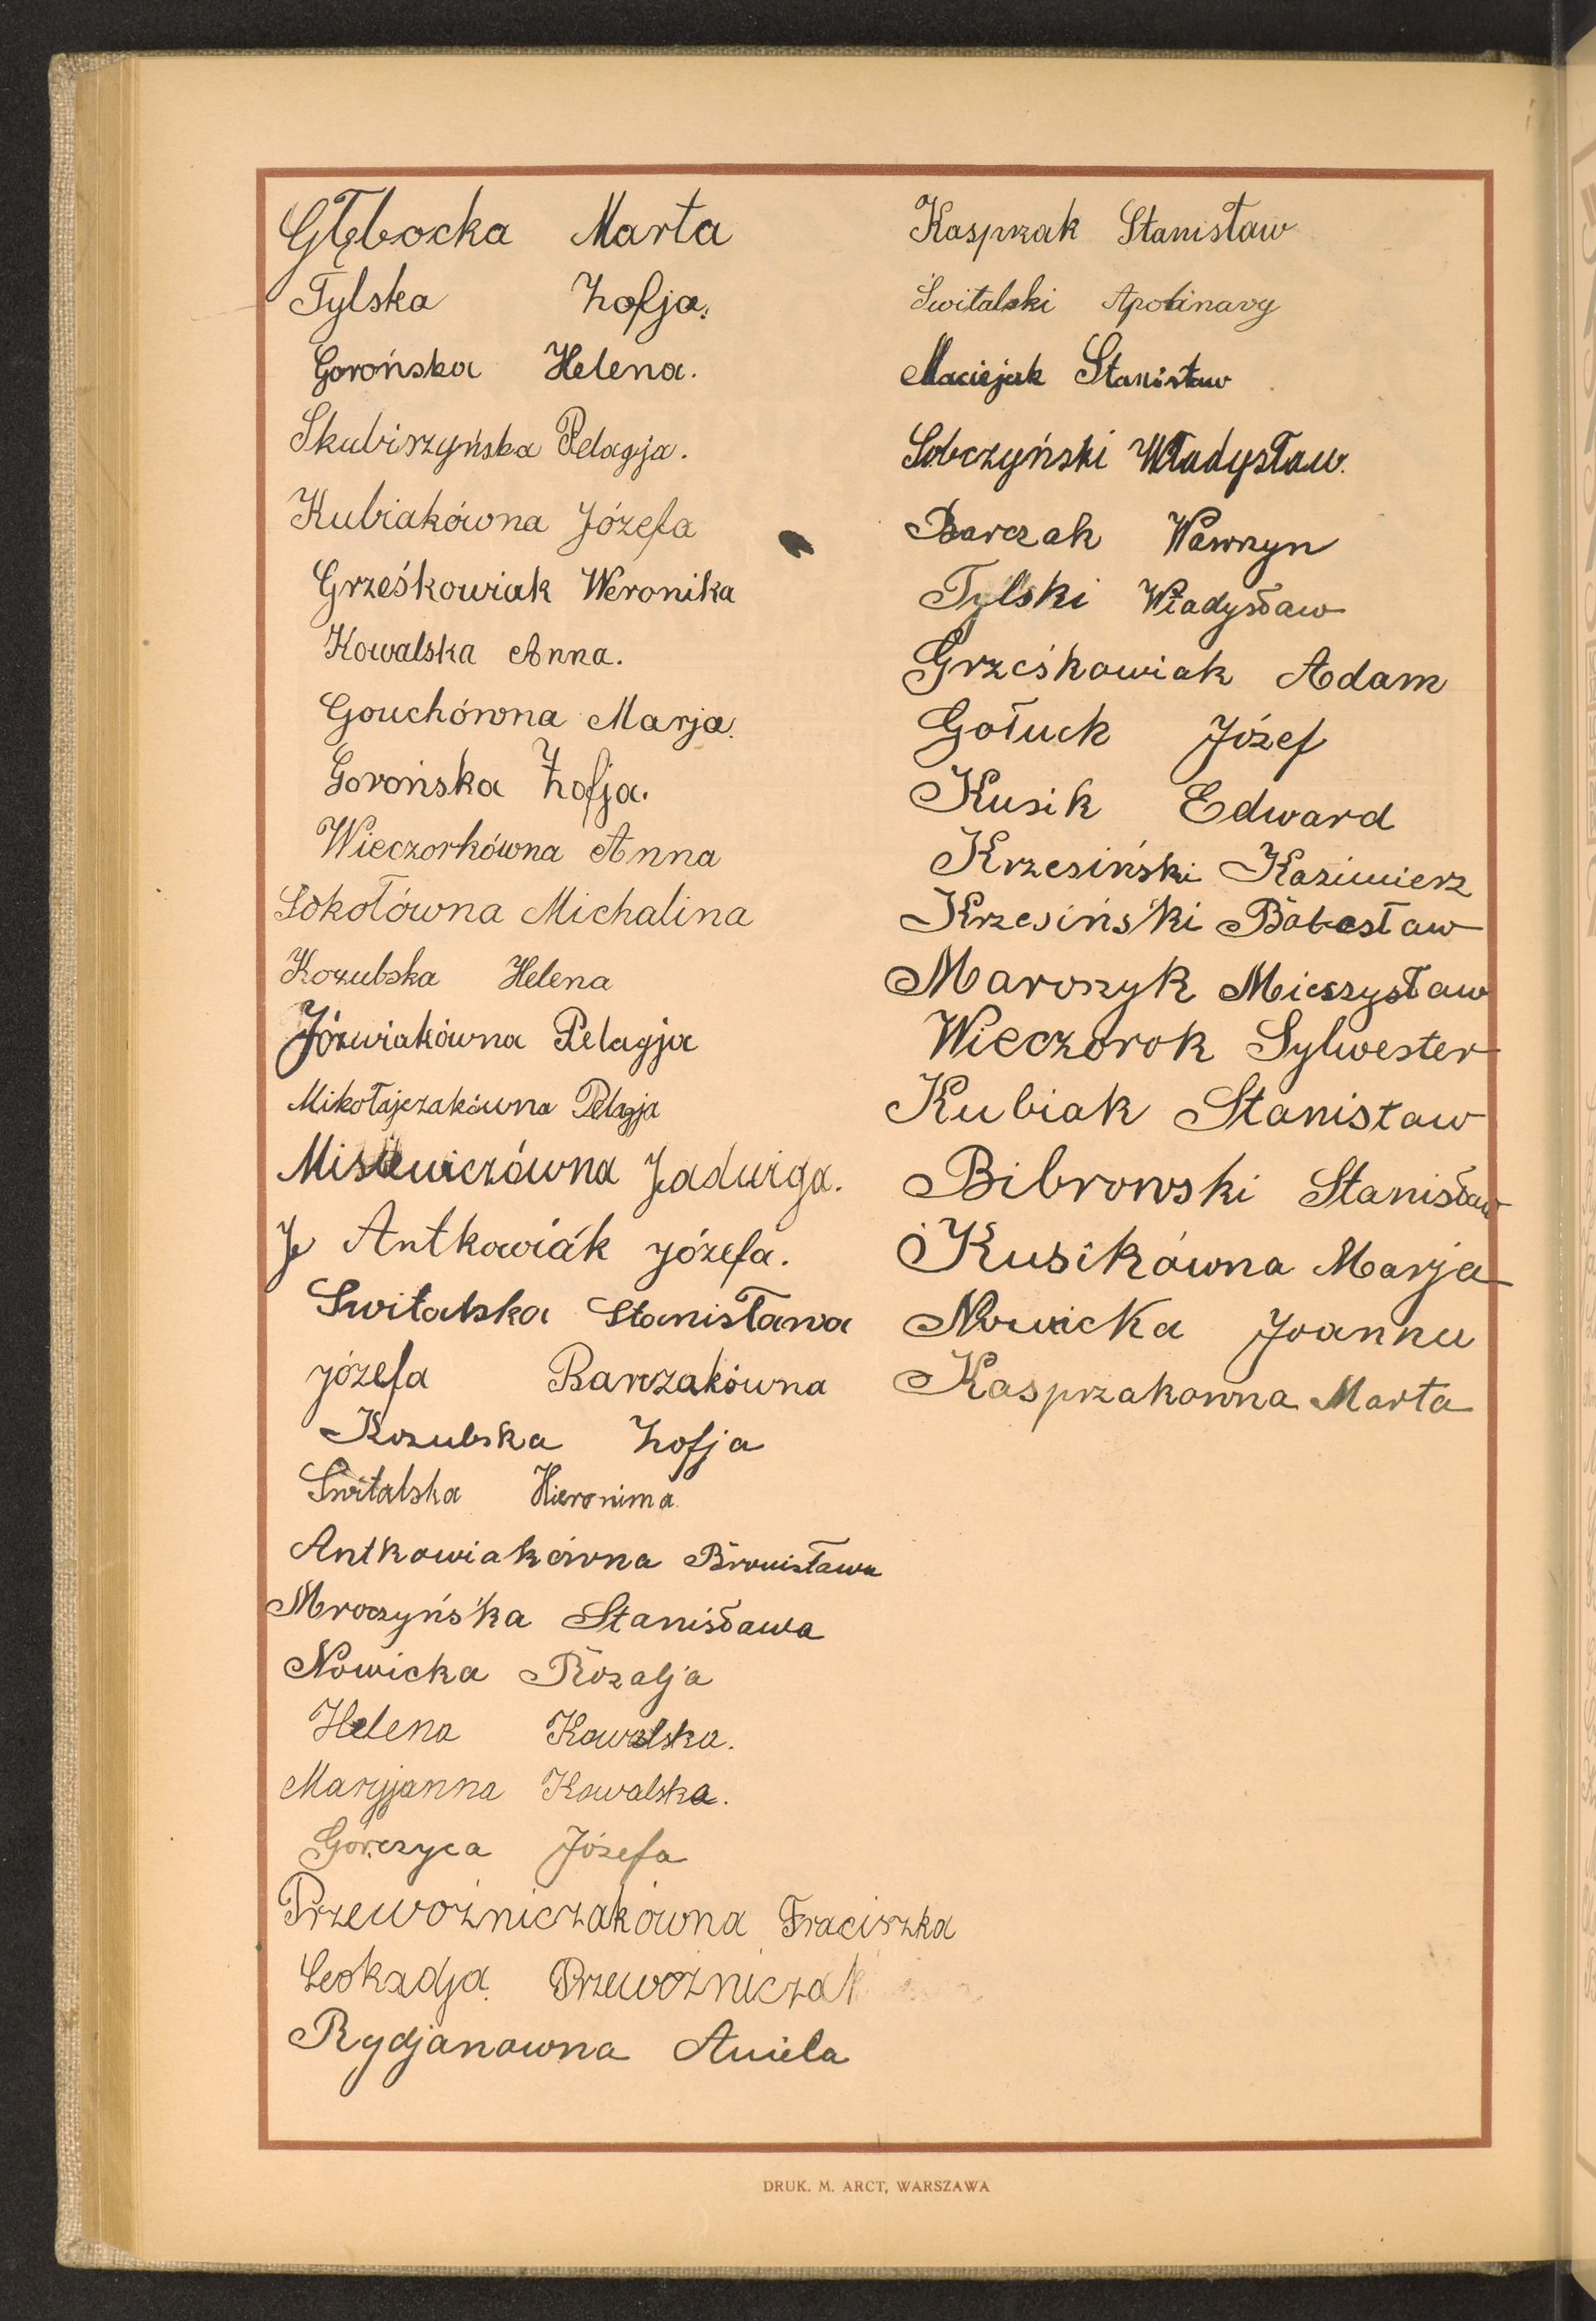 Głębocka Marta
Tylska Zofja.
Gorońska Helena.
Skubiszyńska Pelagja.
Kubiakówna Józefa
Grześkowiak Weronika
Kowalska Anna.
Gouchówna Marja.
Gorońska Zofja.
Wieczorkówna Anna
Sokołówna Michalina
Kozubska Helena
Józwiakówna Pelagja
Mikołajczakówna Pelagja
Misiewiczówna Jadwiga.
Antkowiák Józefa.
Switalska Stanisława
Józefa Barczakówna
Kozubska Zofja
Switalska Hieronima
Antkowiakówna Bronisława
Mroczyńska Stanisława
Nowicka Rozalja
Helena Kowalska.
Maryjanna Kowalska.
Górczyca Józefa
Przewozniczakówna Fraciszka
Leokadja Przewozniczak
Rydjanowna Aniela
Kasprzak Stanisław
Switalski Apolinary
Maciejak Stanisław
Sobczyński Władysław.
Barczak Wawrzyn
Tylski Władysław
Grześkowiak Adam
Gołuck Józef
Kusik Edward
Krzesiński Kazimierz
Krzesiński Bolesław
Maroszyk Mieszysław
Wieczorok Sylwester
Kubiak Stanisław
Bibrowski Stanisław
Kusikówna Marja
Nowicka Joanna
Kasprzakowna Marta
DRUK. M. ARCT, WARSZAWA